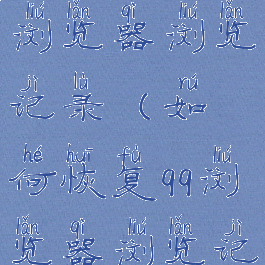 liú lǎn qì liú lǎn
浏览器浏览
jì lù rú
记录（如
hé huī fù liú
何恢复qq浏
lǎn qì liú lǎn jì
览器浏览记